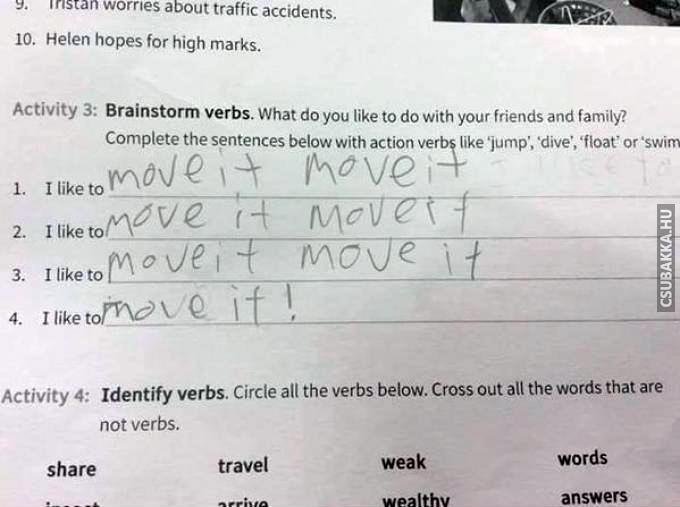 9. Tristan worries about traffic accidents.
10. Helen hopes for high marks.
Activity 3: Brainstorm verbs. What do you like to do with your friends and family?
Complete the sentences below with action verbs like 'jump', 'dive', 'float' or 'swim
1. I like to move it move it
2. I like to move it move it
3. I like to move it move it
4. I like to move it!
CSUBAKKA.HU
Activity 4: Identify verbs. Circle all the verbs below. Cross out all the words that are
not verbs.
share travel weak words
arrive wealthy answers